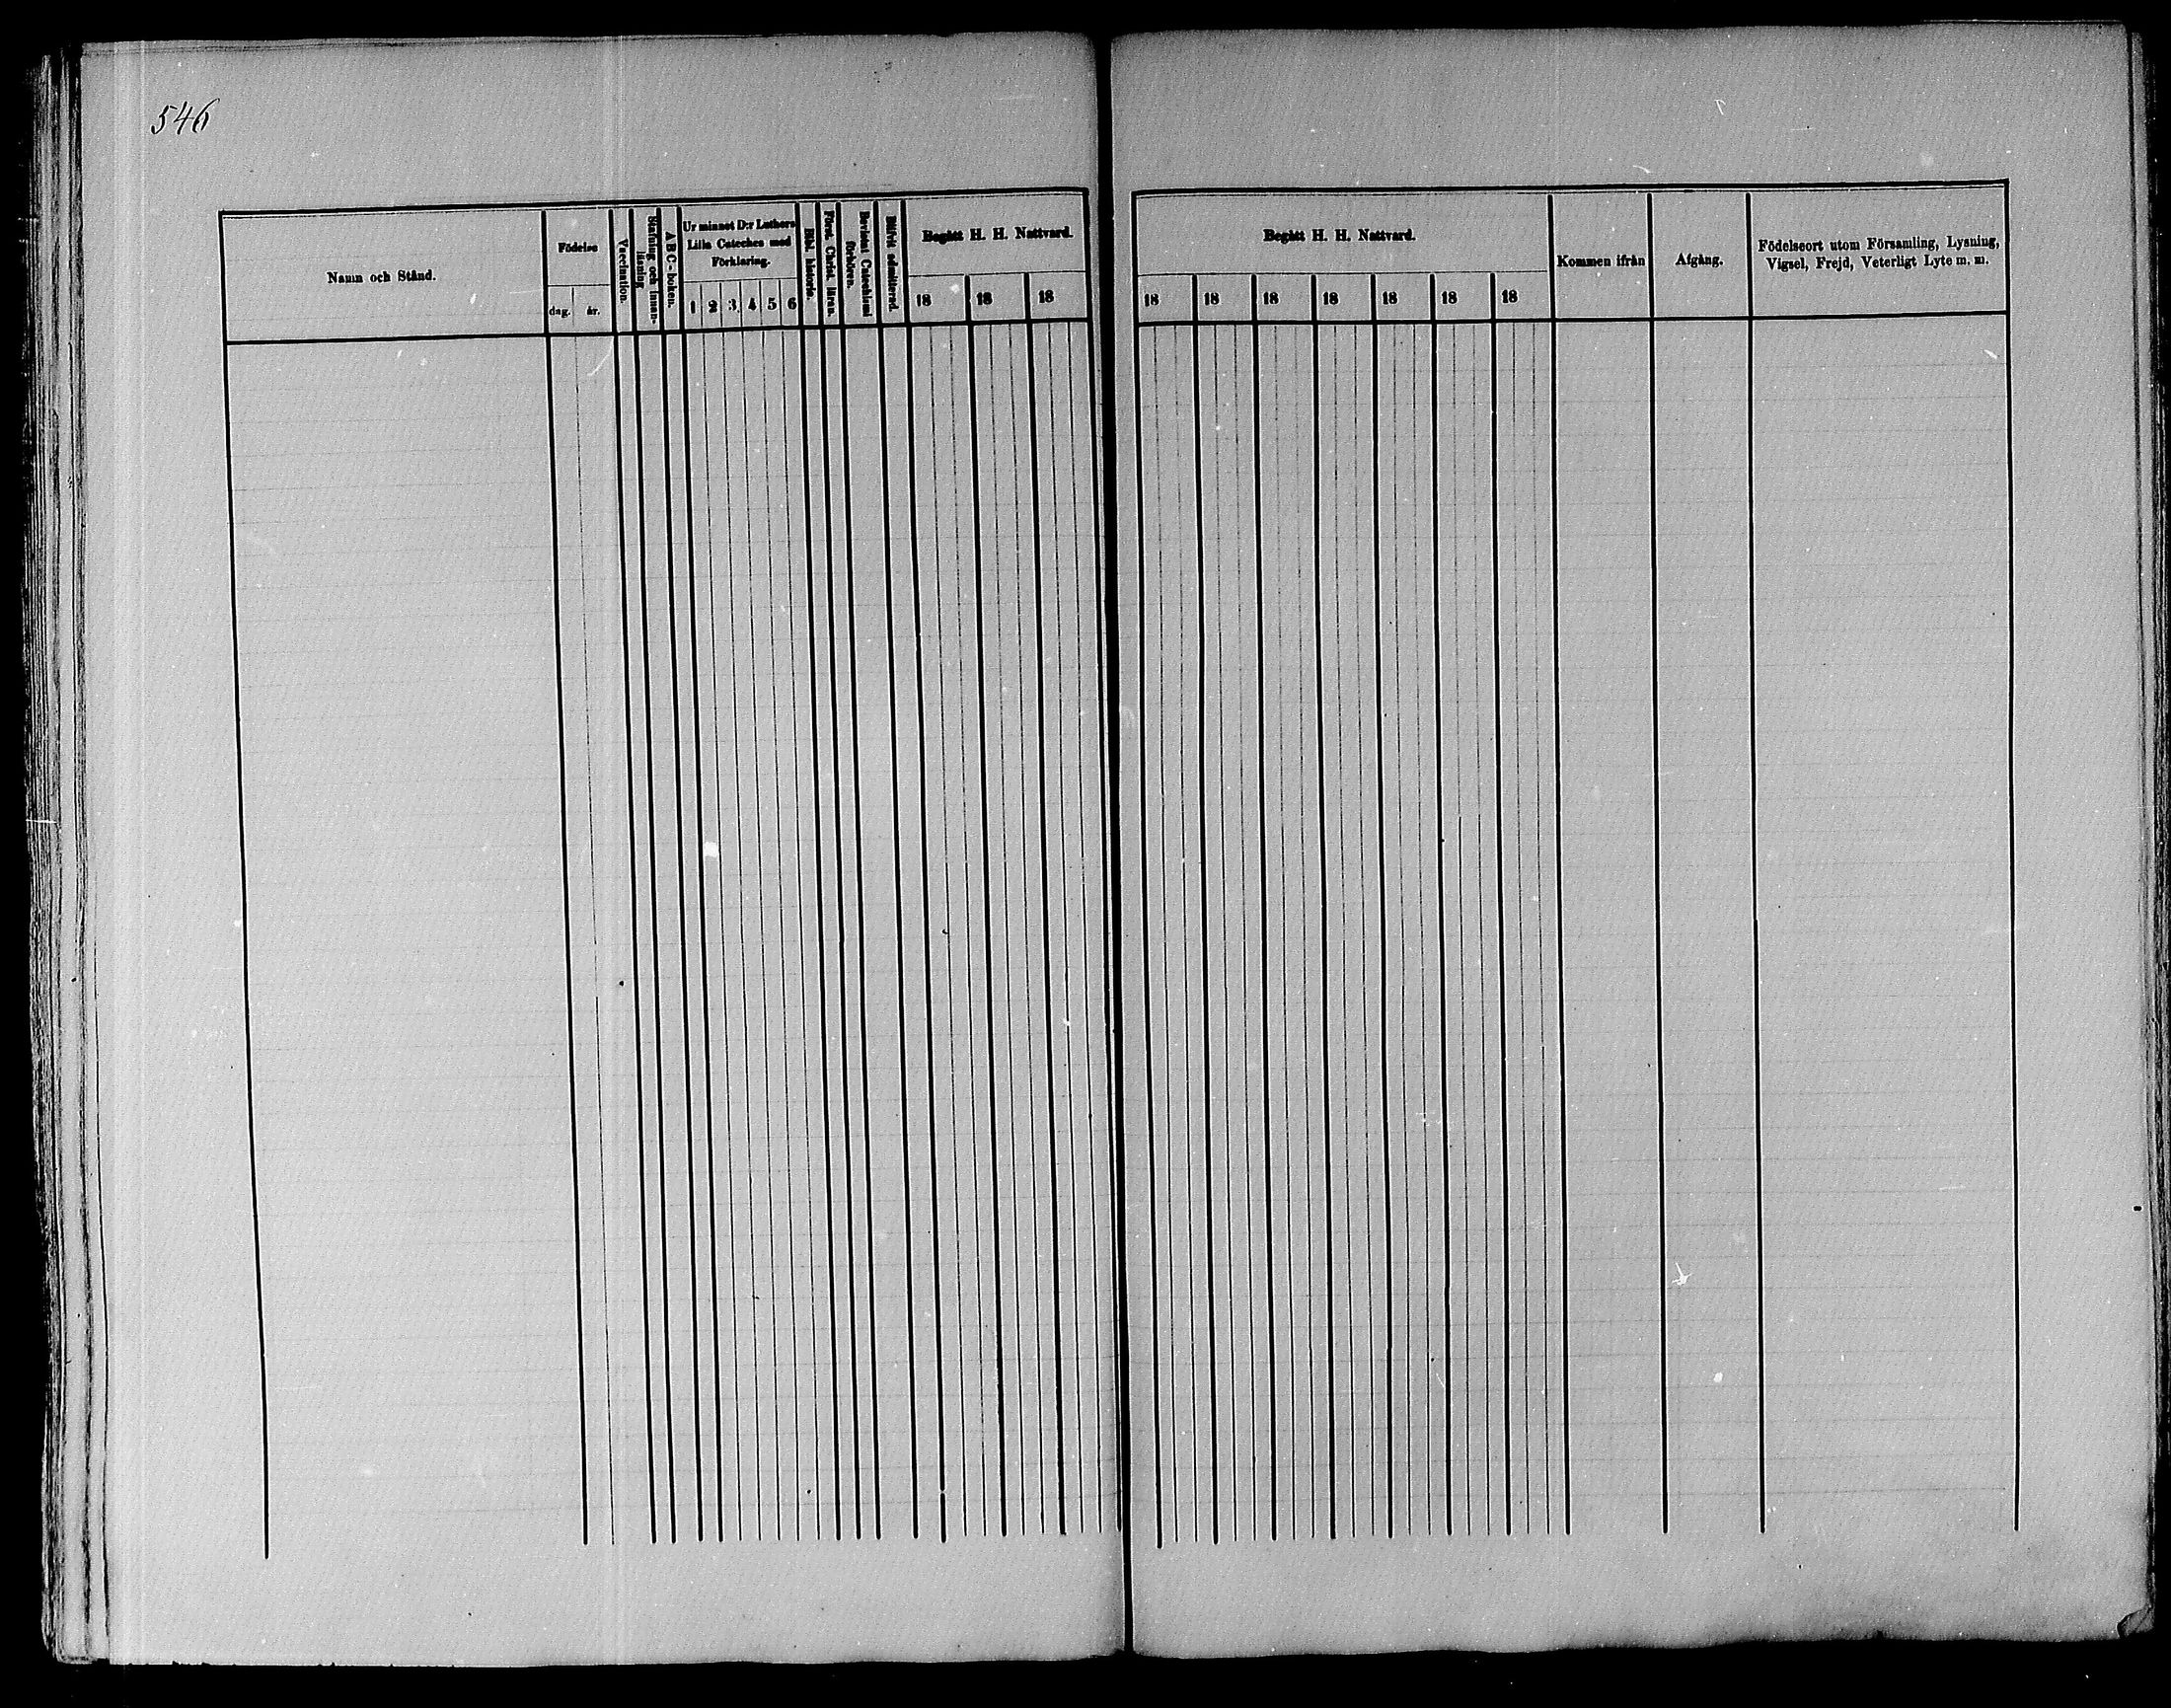 546
Namn och Stånd.
Födelse
dag.
år.
Vaccination.
Stafning och Innan-
läsning
A B C-boken.
Ur minnet D:r Luthers
Lilla Cateches med
Förklaring.
1 2 3. 4 5 6
Bibl. historie.
Först. Christ. läran.
Bevistat Catechismi
förhören.
Blifvit admitterad.
Begått H. H. Nattvard.
18 18 18
Begått H. H. Nattvard.
18 18 18 18 18 18 18
Kommen ifrån
Afgång.
Födelseort utom Församling, Lysning,
Vigsel, Frejd, Veterligt Lyte m. m.